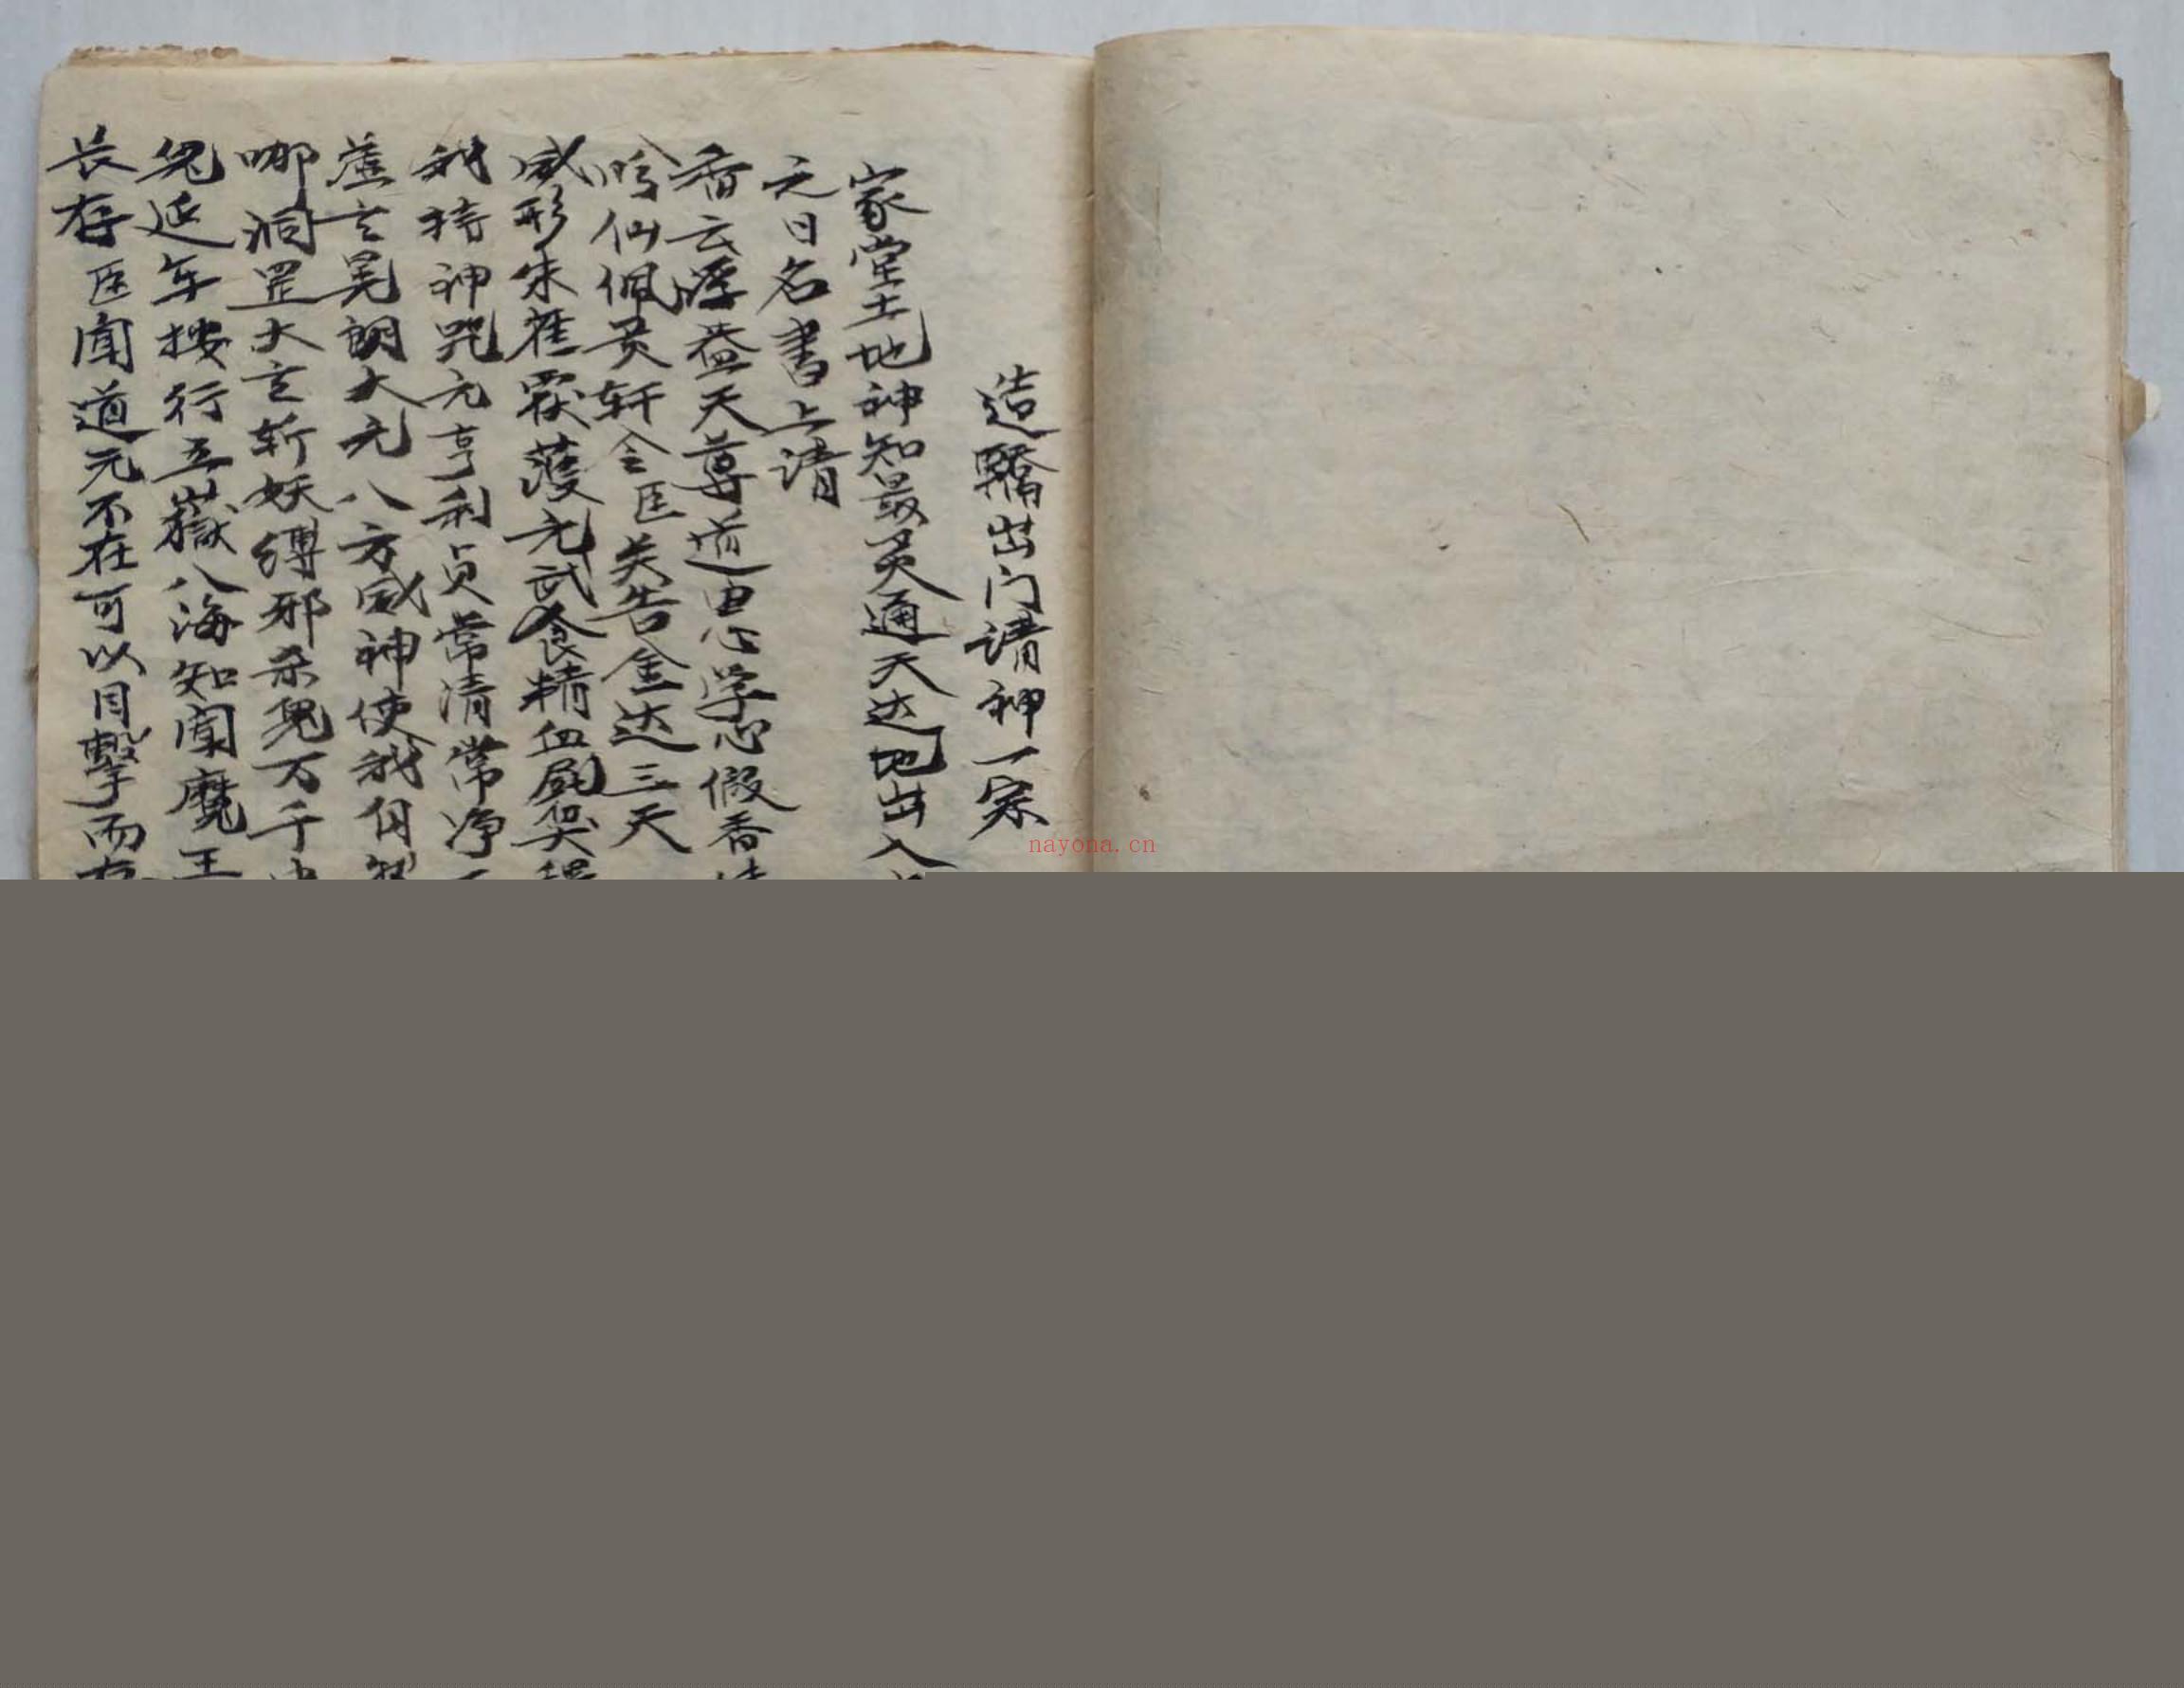 造驕出门请神一宗
家堂土地神知最灵通天达地出入
元日名書上请
香云浮蓋天尊道由心学心假香
吟仙佩灵轩令臣关告金达三天
威形朱雀
食精血
我持神咒元亨利贞常清常净
虚玄晃朗太元八方威神使我自
哪洞罡大玄斩妖缚邪杀鬼万千
鬼延年按行五嶽八海知闻魔王
长存臣闻道元不在可以目擊而存
nayona.cn